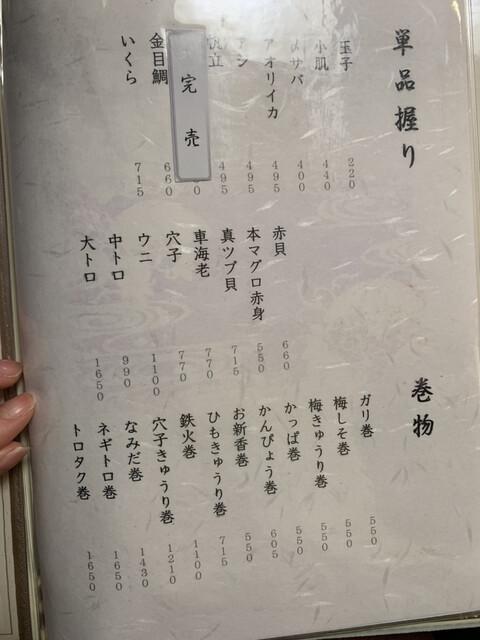 単品握り
玉子 220
小肌 440
〆サバ 400
アオリイカ 495
アジ 495
帆立 495
完売 0
金目鯛 660
いくら 715
赤貝 660
本マグロ赤身 550
真ツブ貝 715
車海老 770
穴子 770
ウニ 1100
中トロ 990
大トロ 1650
巻物
ガリ巻 550
梅しそ巻 550
梅きゅうり巻 550
かっぱ巻 550
かんぴょう巻 605
お新香巻 550
ひもきゅうり巻 715
鉄火巻 1100
穴子きゅうり巻 1210
なみだ巻 1430
ネギトロ巻 1650
トロタク巻 1650